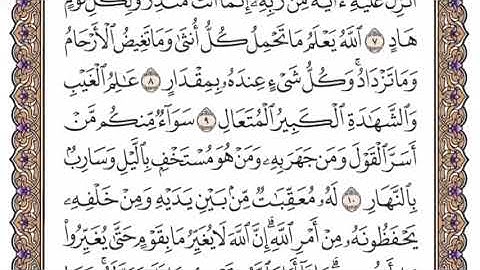 أُنزِلَ عَلَيْهِ ءَايَةٌ مِّن رَّبِّهِۦٓ ۗ إِنَّمَآ أَنتَ مُنذِرٌ ۖ وَلِكُلِّ قَوْمٍ
هَادٍ ٧ ٱللَّهُ يَعْلَمُ مَا تَحْمِلُ كُلُّ أُنثَىٰ وَمَا تَغِيضُ ٱلْأَرْحَامُ
وَمَا تَزْدَادُ ۖ وَكُلُّ شَىْءٍ عِندَهُۥ بِمِقْدَارٍ ٨ عَٰلِمُ ٱلْغَيْبِ
وَٱلشَّهَٰدَةِ ٱلْكَبِيرُ ٱلْمُتَعَالِ ٩ سَوَآءٌ مِّنكُم مَّنْ
أَسَرَّ ٱلْقَوْلَ وَمَن جَهَرَ بِهِۦ وَمَنْ هُوَ مُسْتَخْفٍۭ بِٱلَّيْلِ وَسَارِبٌۢ
بِٱلنَّهَارِ ١٠ لَهُۥ مُعَقِّبَٰتٌ مِّنۢ بَيْنِ يَدَيْهِ وَمِنْ خَلْفِهِۦ
يَحْفَظُونَهُۥ مِنْ أَمْرِ ٱللَّهِ ۗ إِنَّ ٱللَّهَ لَا يُغَيِّرُ مَا بِقَوْمٍ حَتَّىٰ يُغَيِّرُوا۟